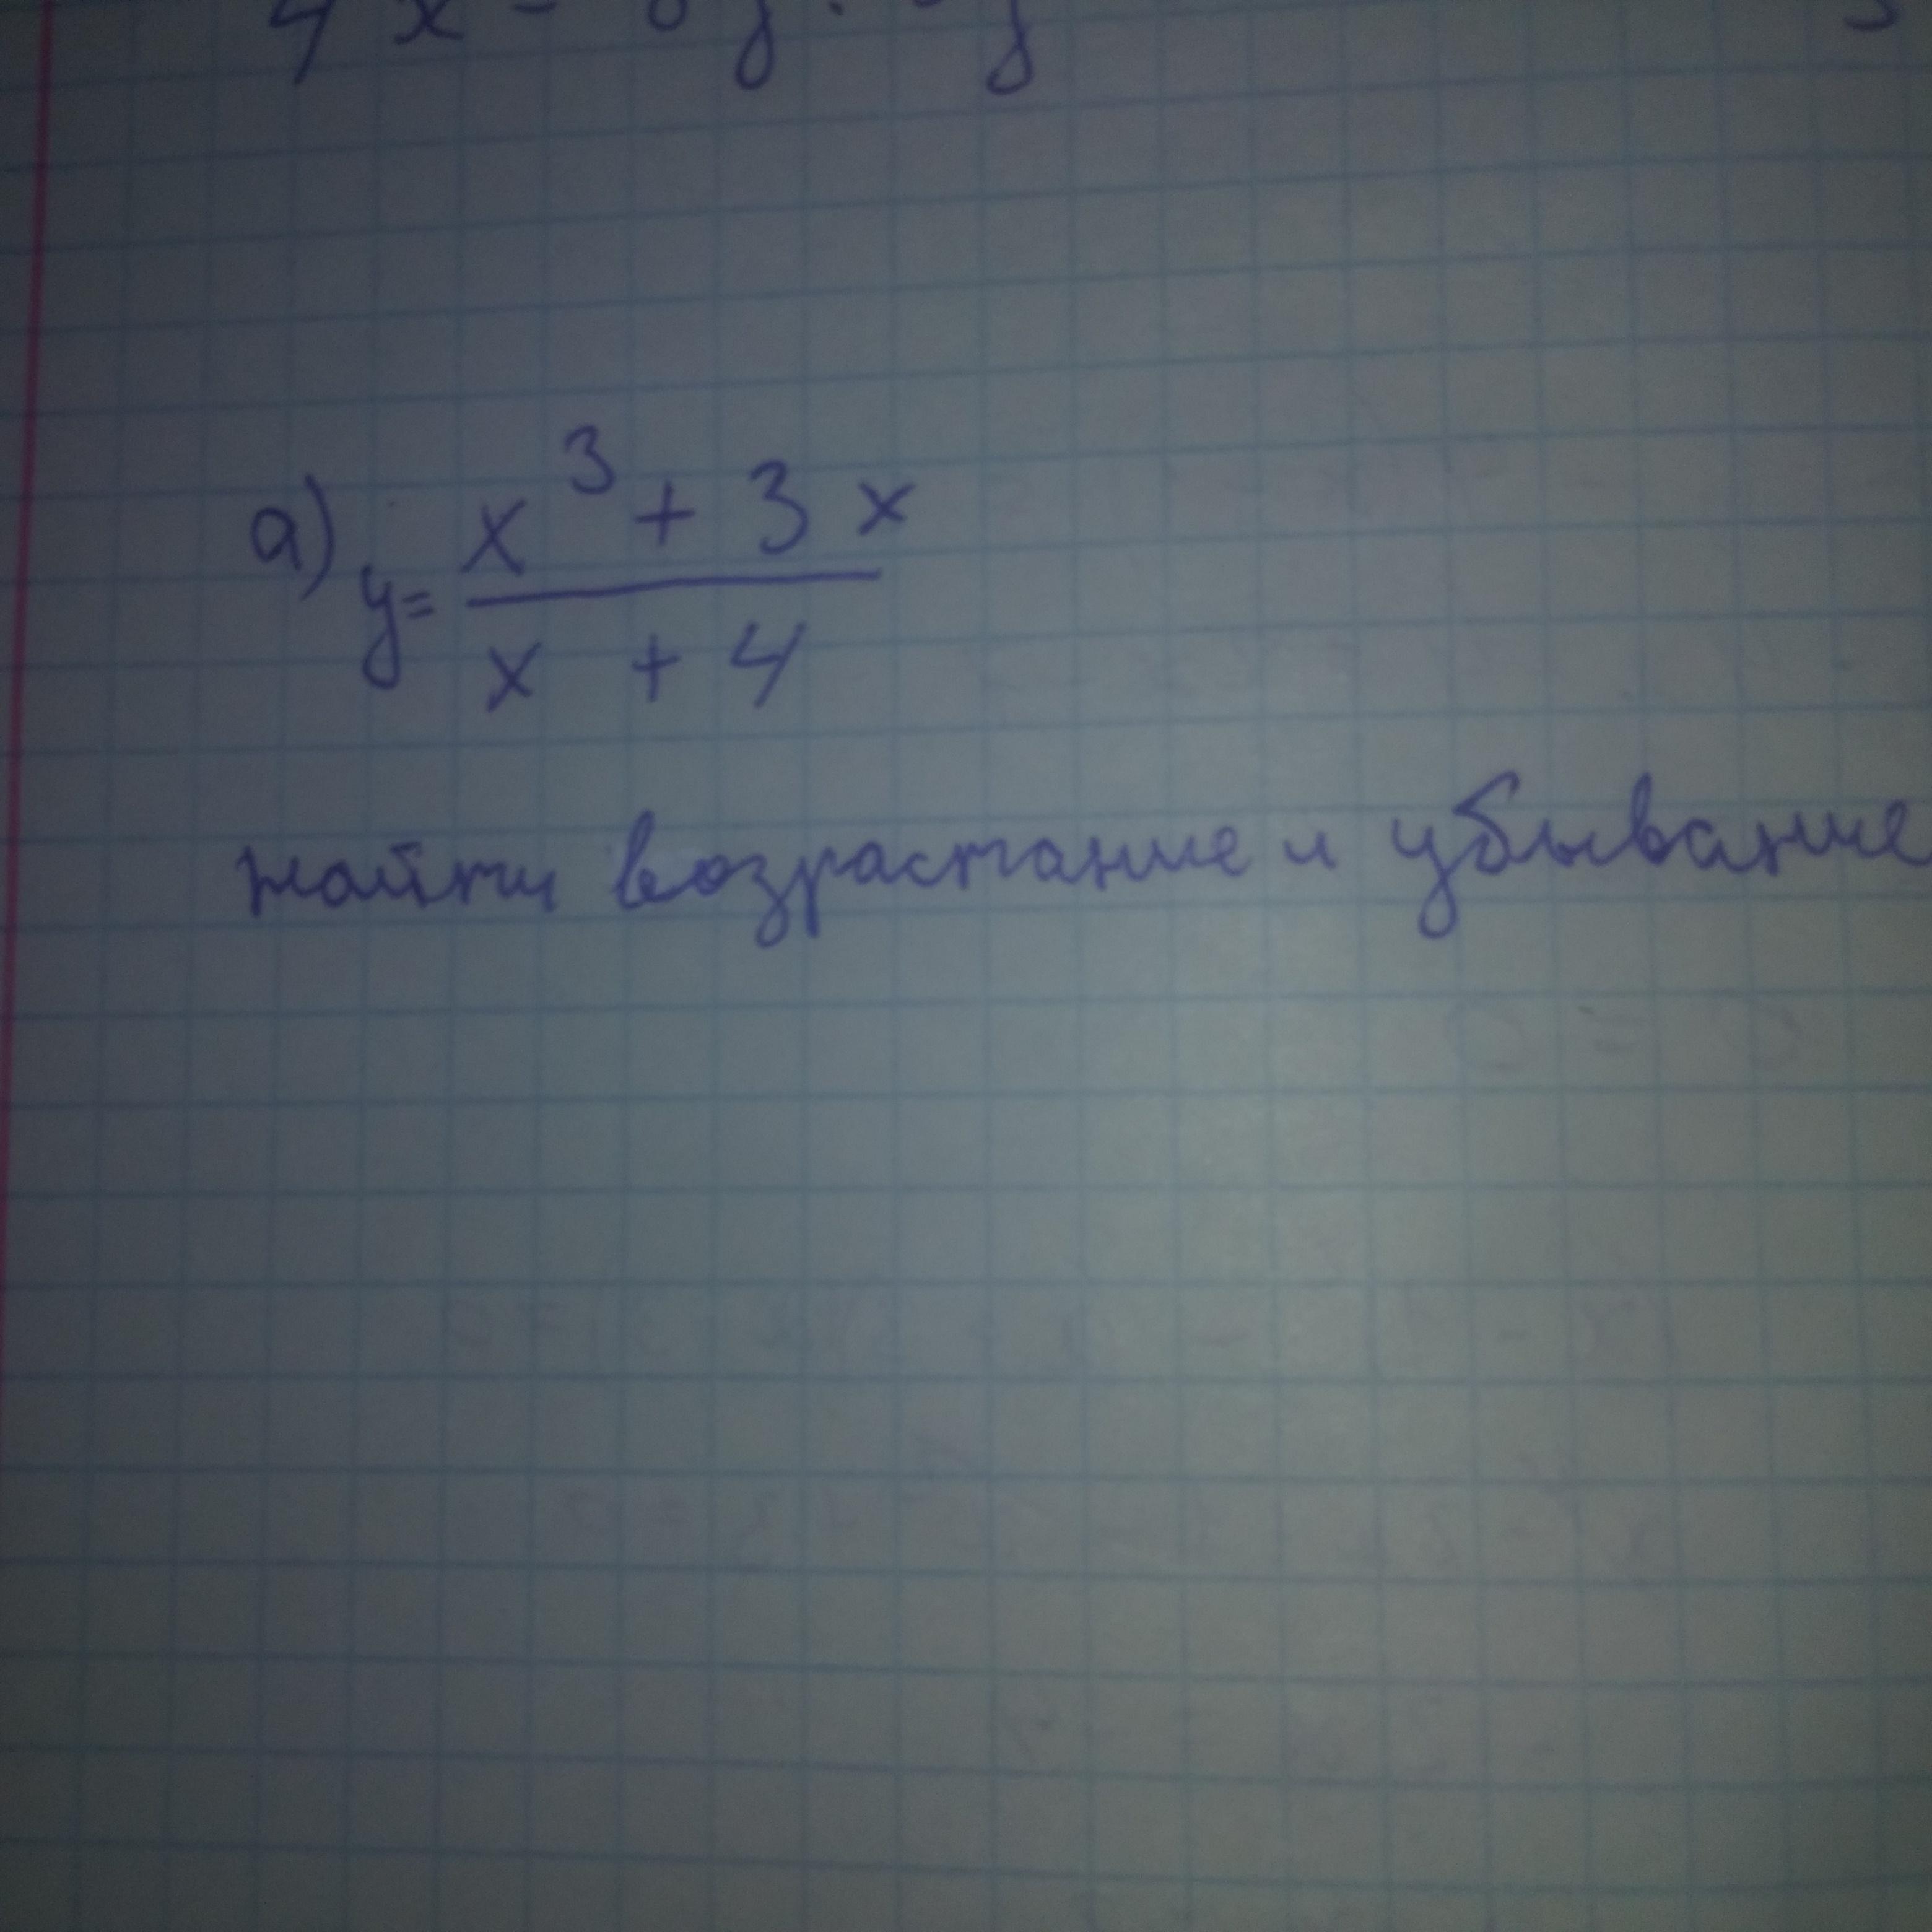 а) y = x³ + 3x
x + 4
найти возрастание и убывание